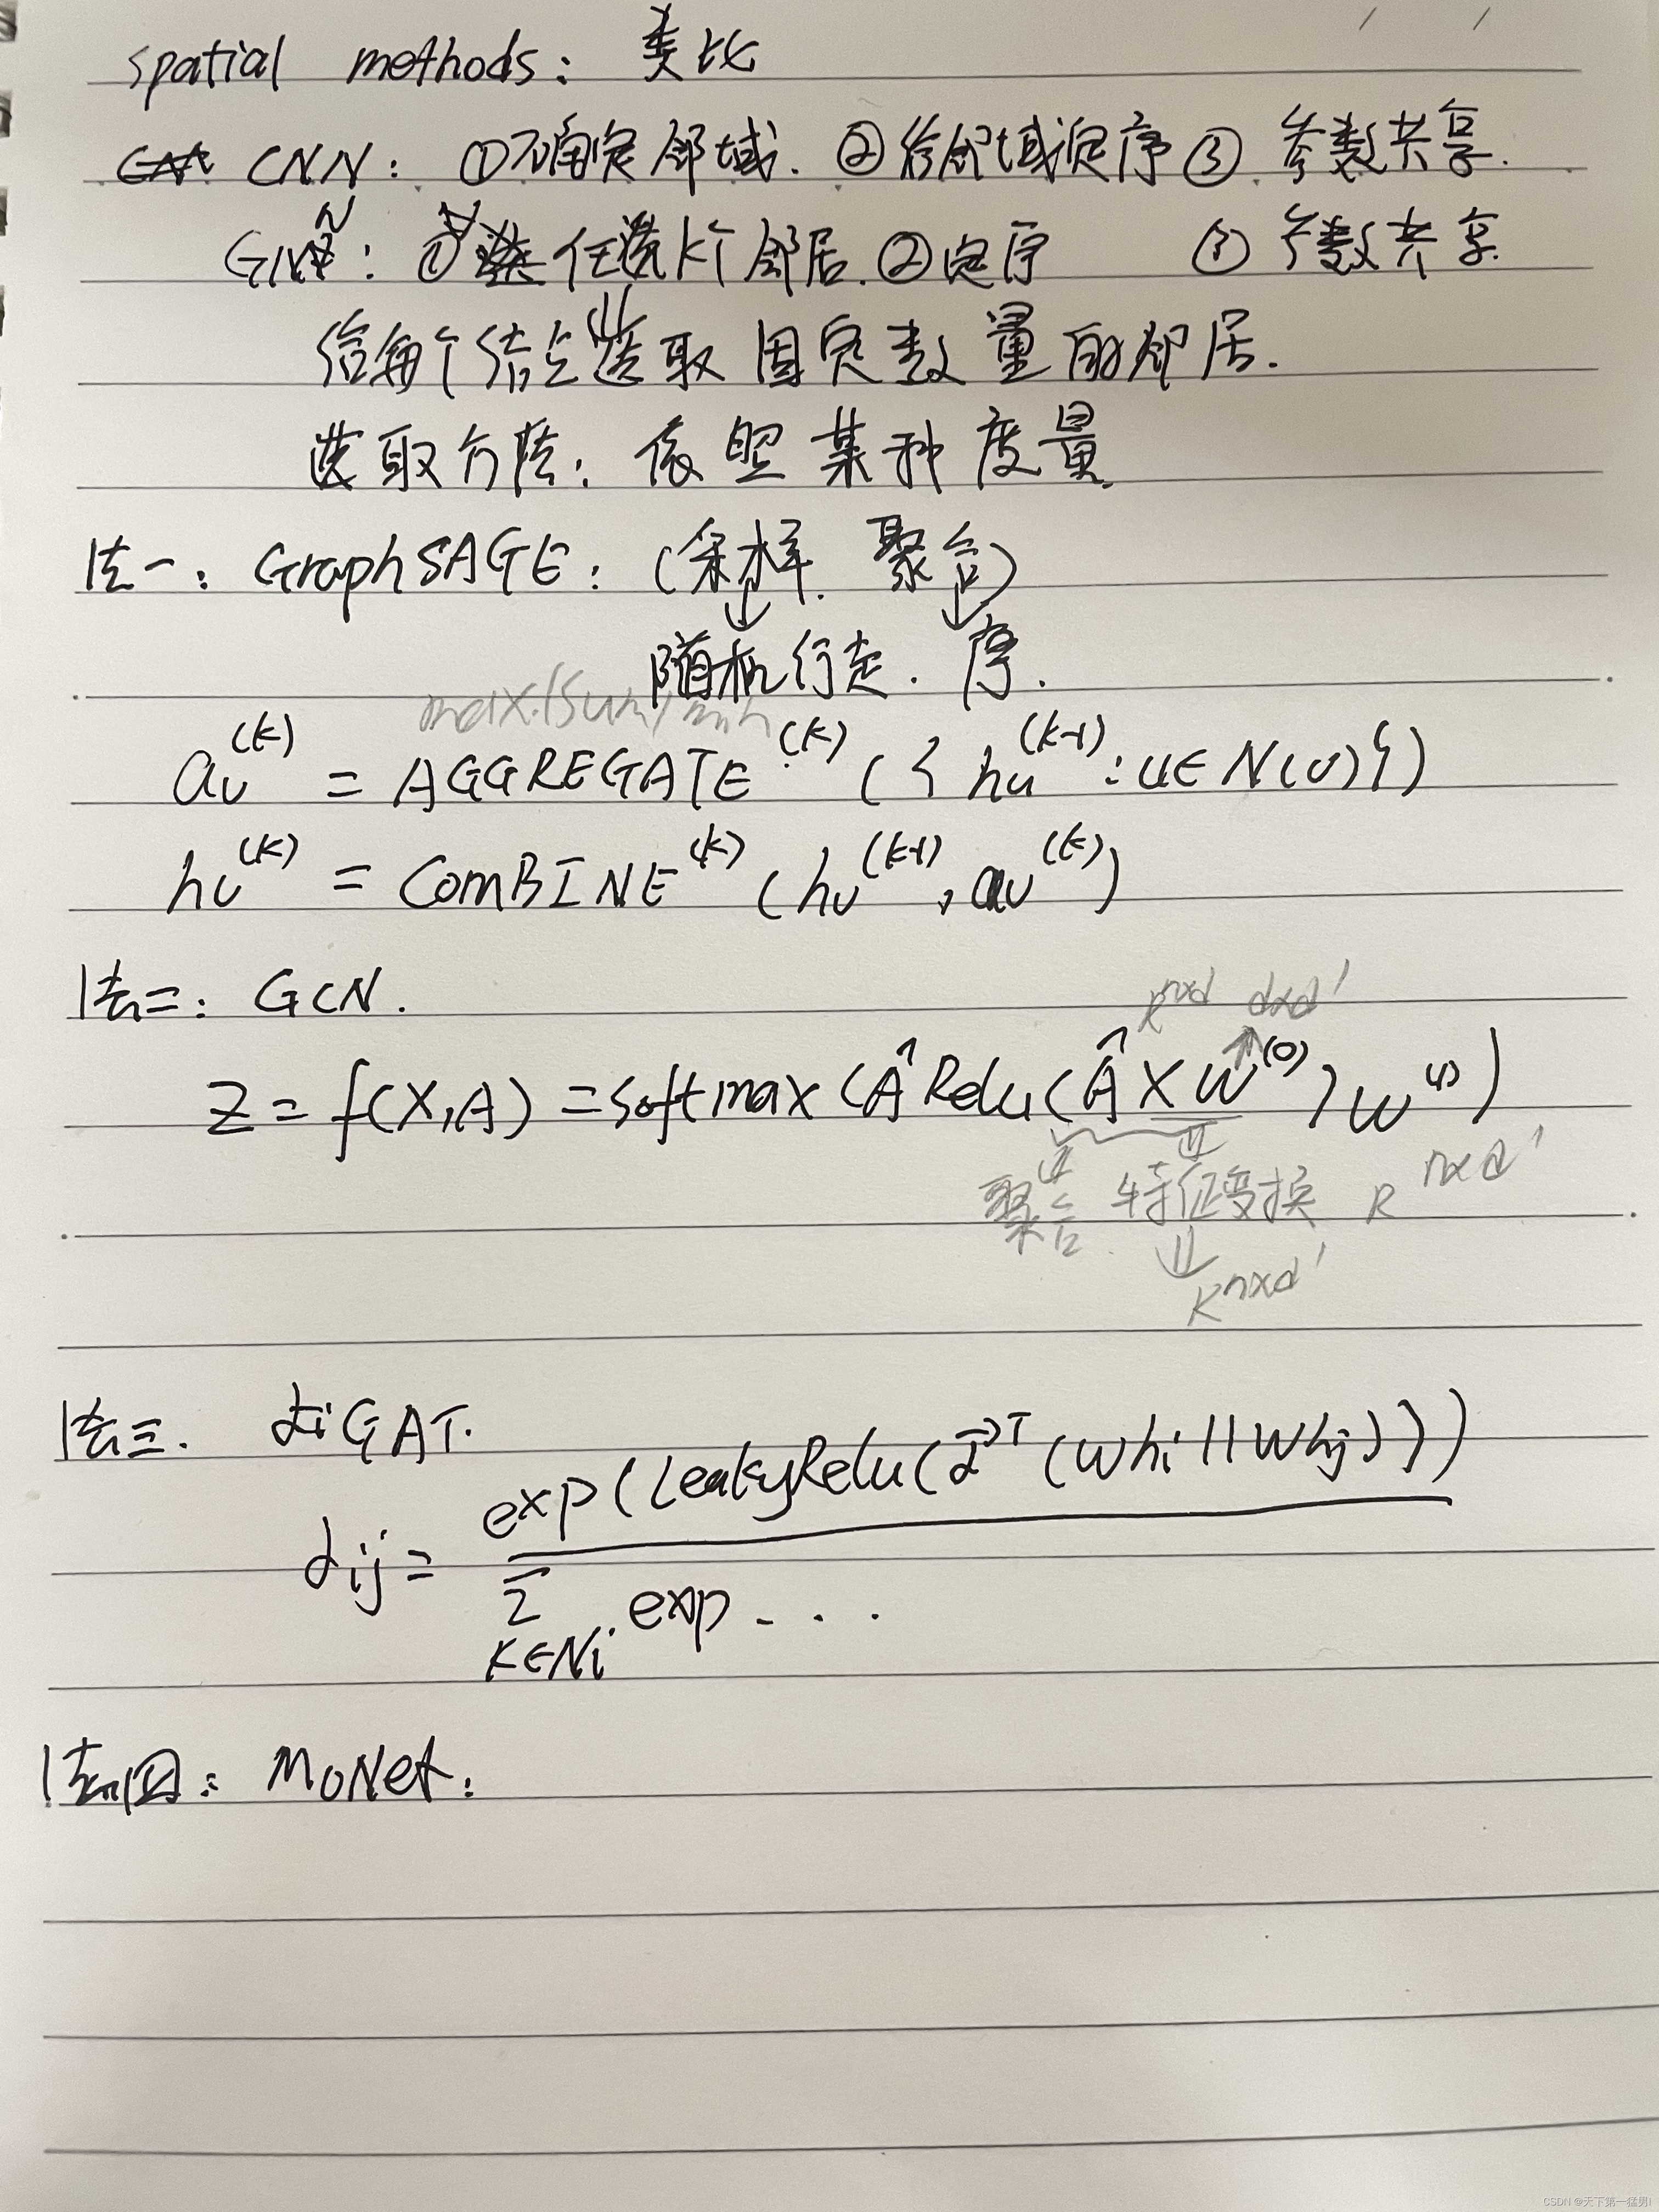 spatial methods: 类比
CNN: ①确定邻域. ②给邻域定序 ③ 参数共享.
GNN: ① 任选k个邻居. ②定序 ③ 参数共享.
给每个结点选取固定数量的邻居.
选取方法: 依照某种度量.
法一: GraphSAGE: (采样. 聚合)
随机行走. 序.
max/sum/
a_v^(k) = AGGREGATE^(k) ({h_u^(k-1) : u∈N(v)})
h_v^(k) = COMBINE^(k) (h_v^(k-1), a_v^(k))
法二: GCN.
R^n×d d×d'
Z = f(X,A) = softmax (Â Relu(Â X W^(0)) W^(1))
聚合. 特征变换 R^n×d'
R^n×d'
法三. GAT.
exp(LeakyRelu(α⃗^T (Whi || Whj)))
αij = ――――
Σ exp ...
k∈Ni
法四: MoNet:
CSDN @天下第一猛男!